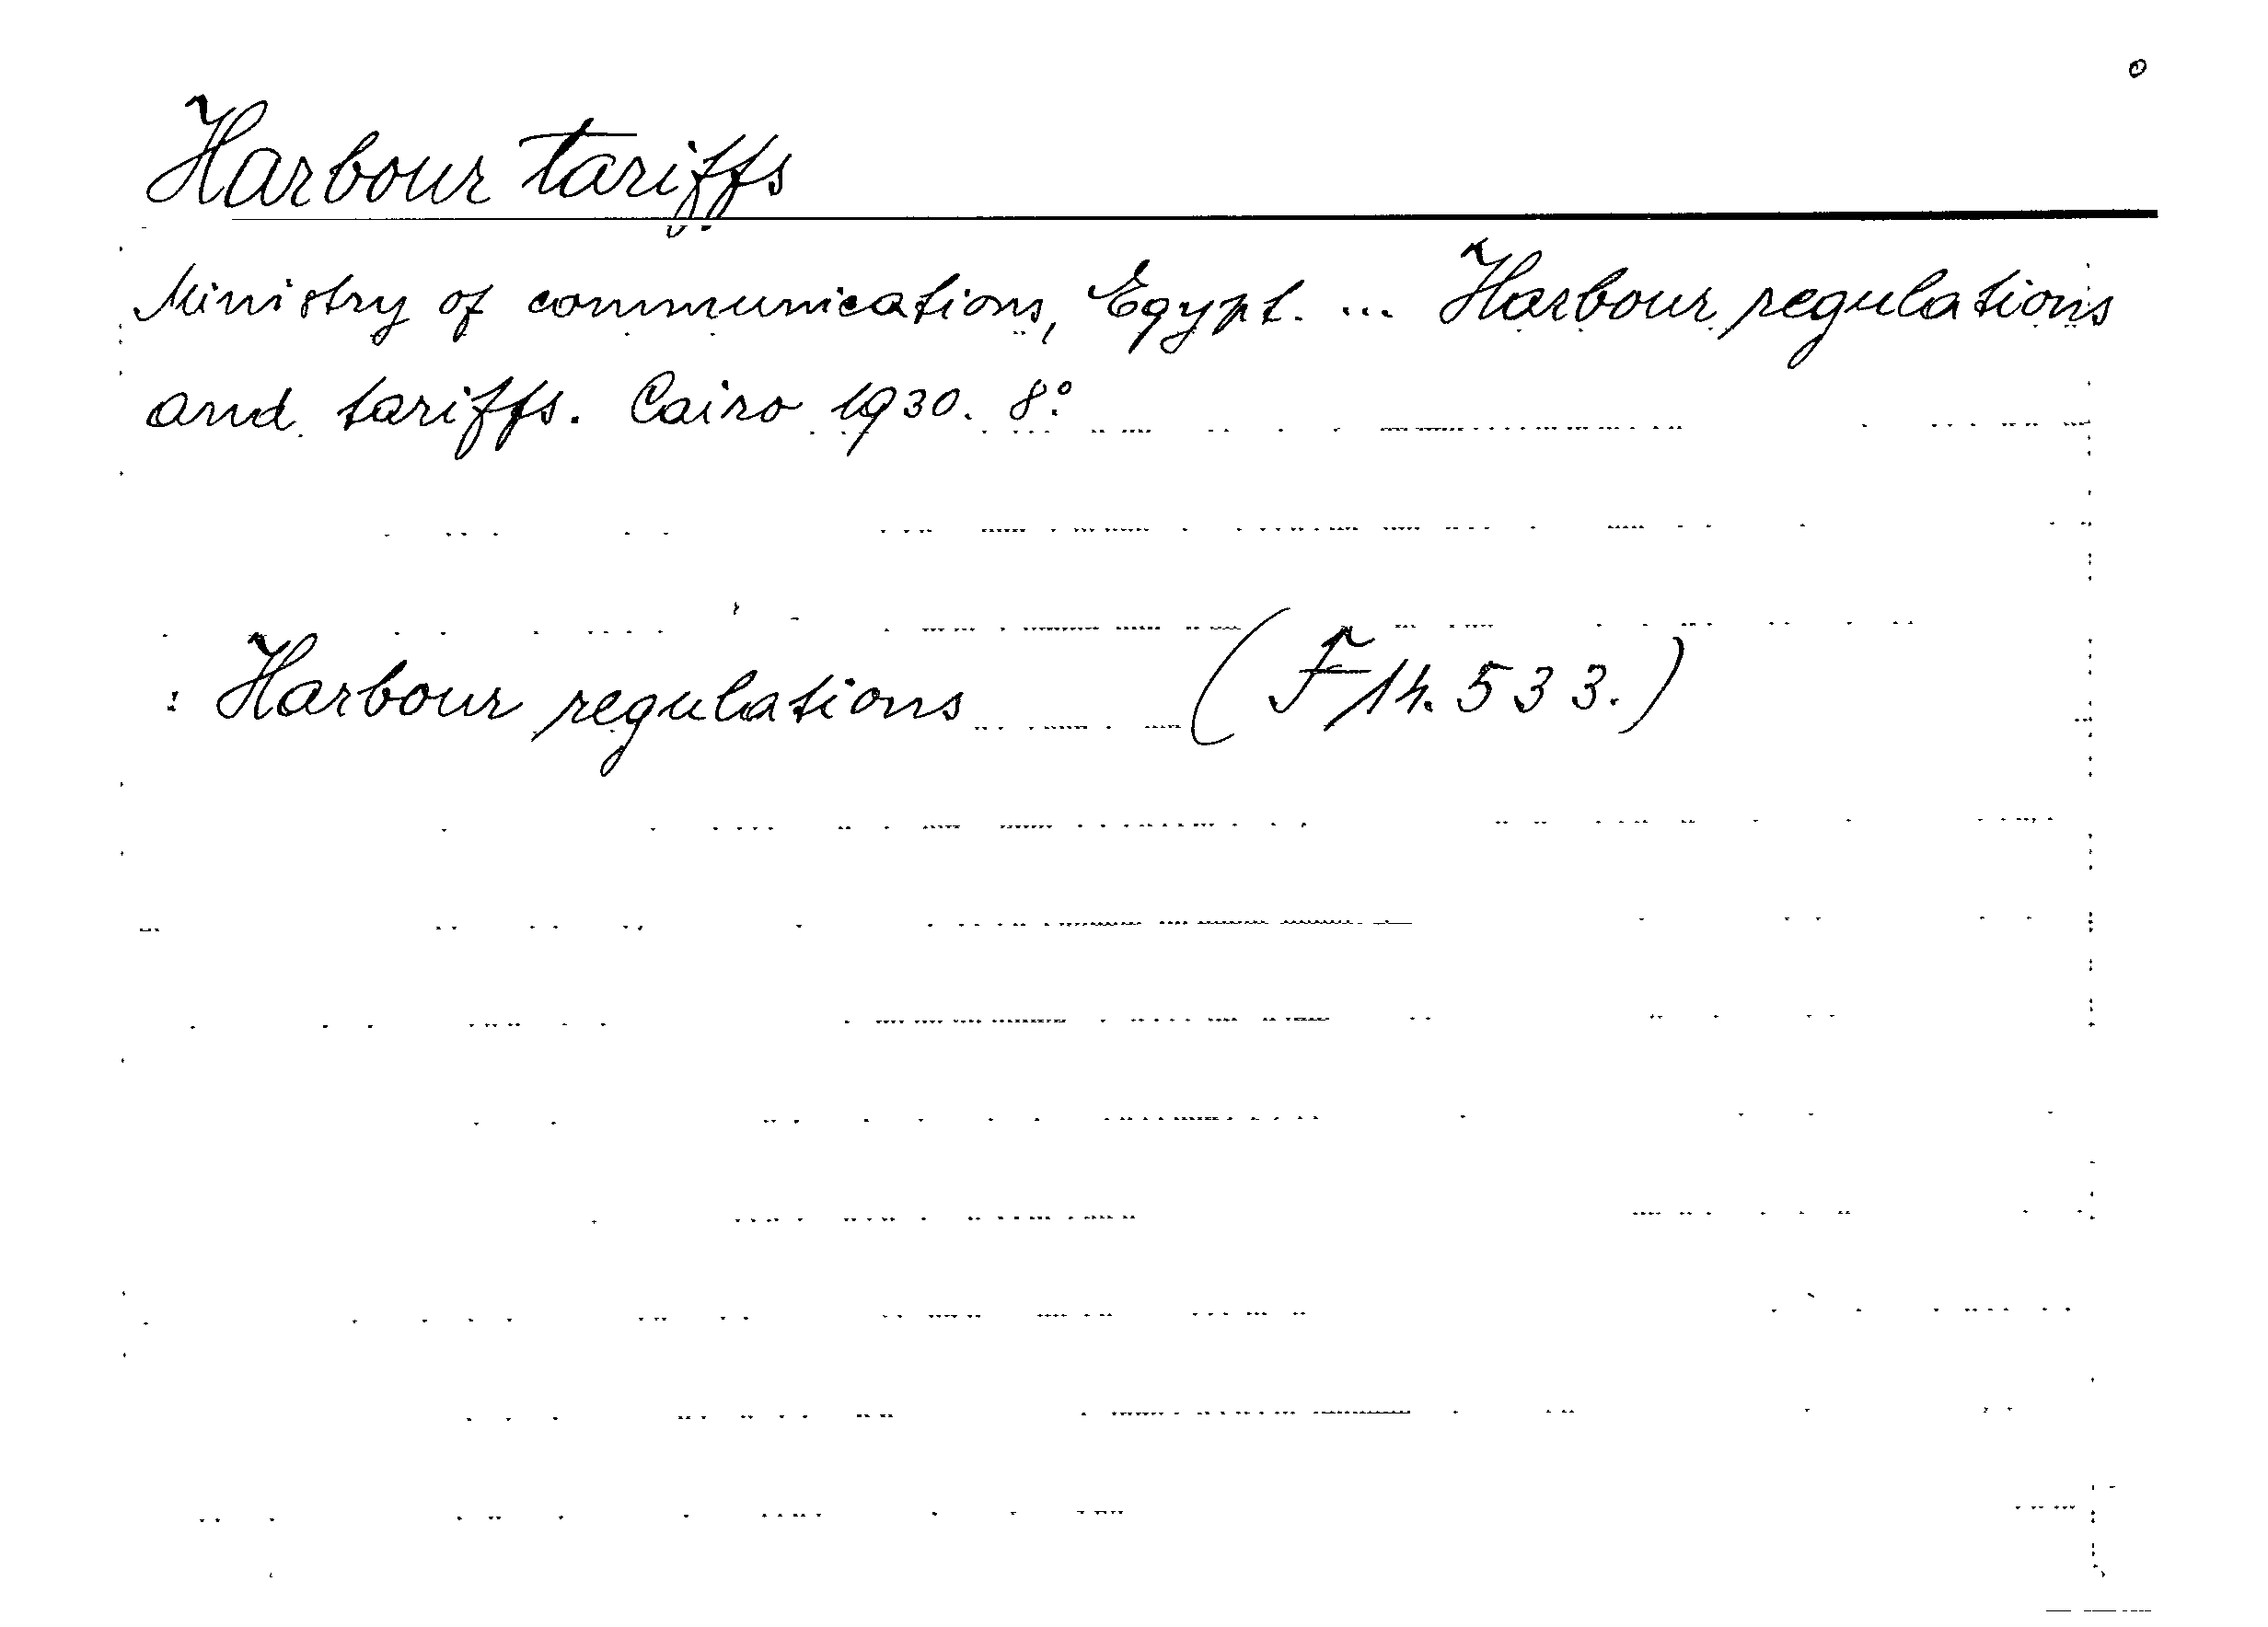 Harbour tariffs
Ministry of communications, Egypt. ... Harbour regulations
and tariffs. Cairo 1930. 8:o
: Harbour regulations (F14.533.)